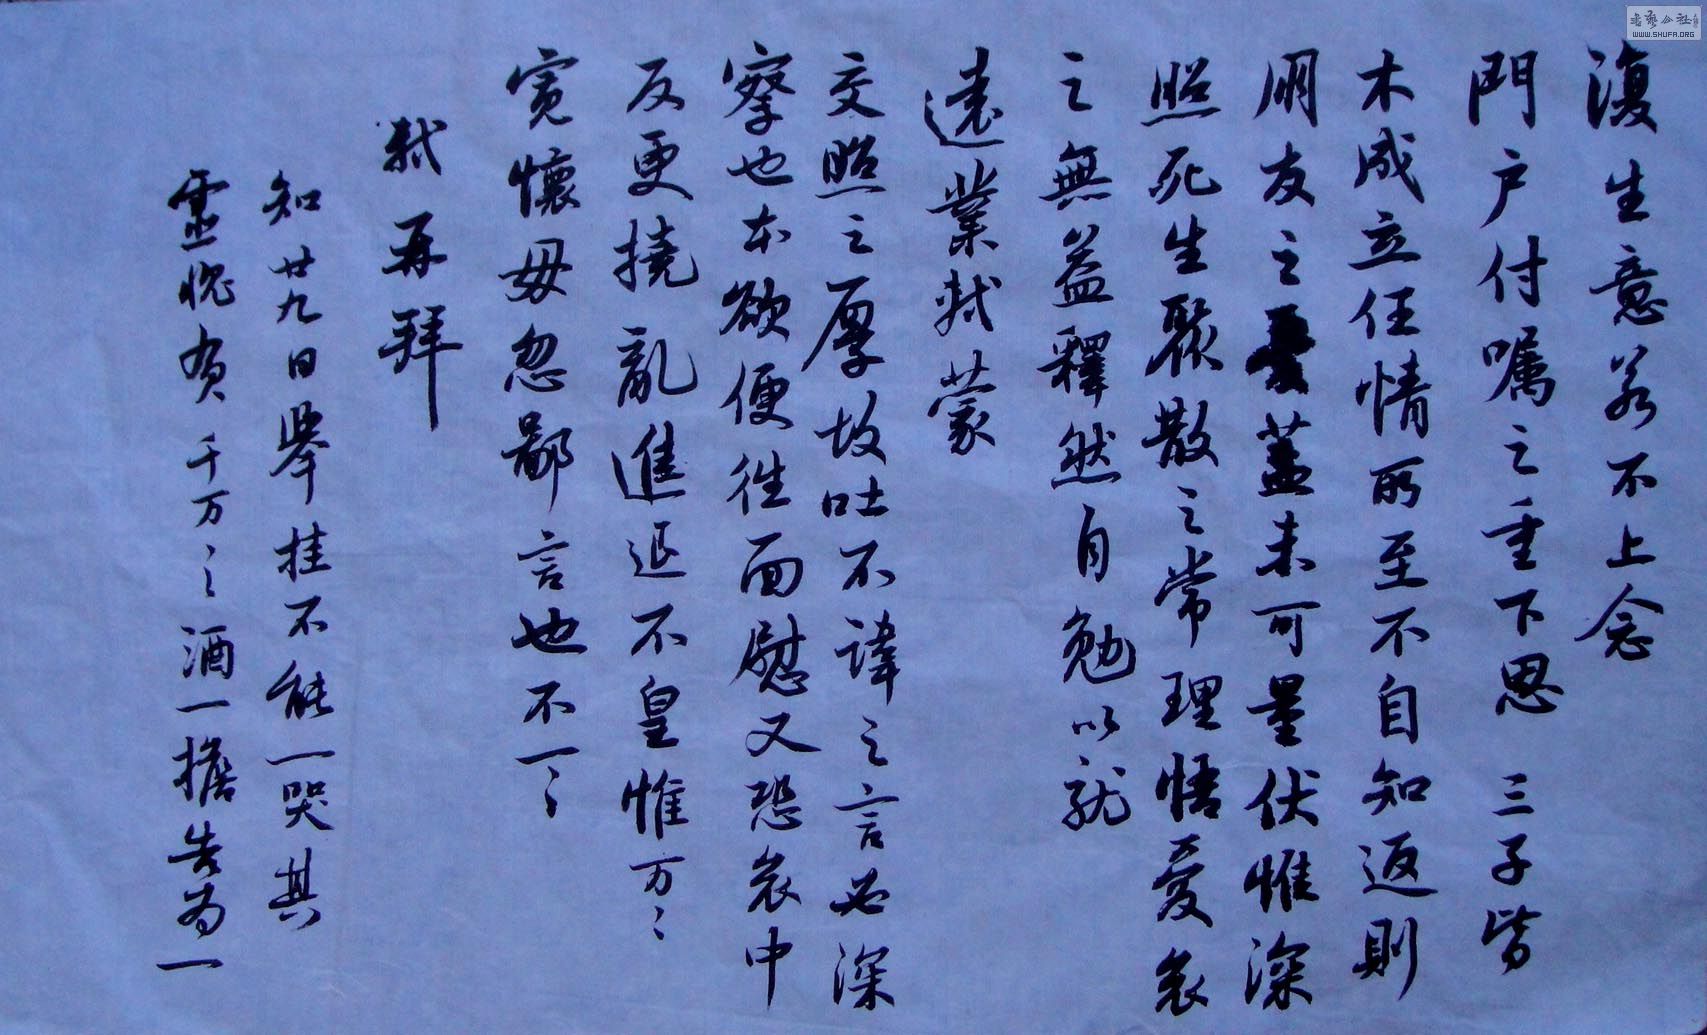 復生意若不上念
門户付嘱之重下思 三子皆
木成立任情所至不自知返則
朋友之憂蓋未可量伏惟深
照死生聚散之常理悟憂哀
之無益釋然自勉以就
遠業軾蒙
交照之厚故吐不諱之言必深
察也本欲便往面慰又恐哀中
反更撓亂進退不皇惟万〻
寬懷毋忽鄙言也不一〻
軾再拜
知廿九日舉挂不能一哭其
靈愧負千万〻酒一擔告为一
書藝公社
WWW.SHUFA.ORG